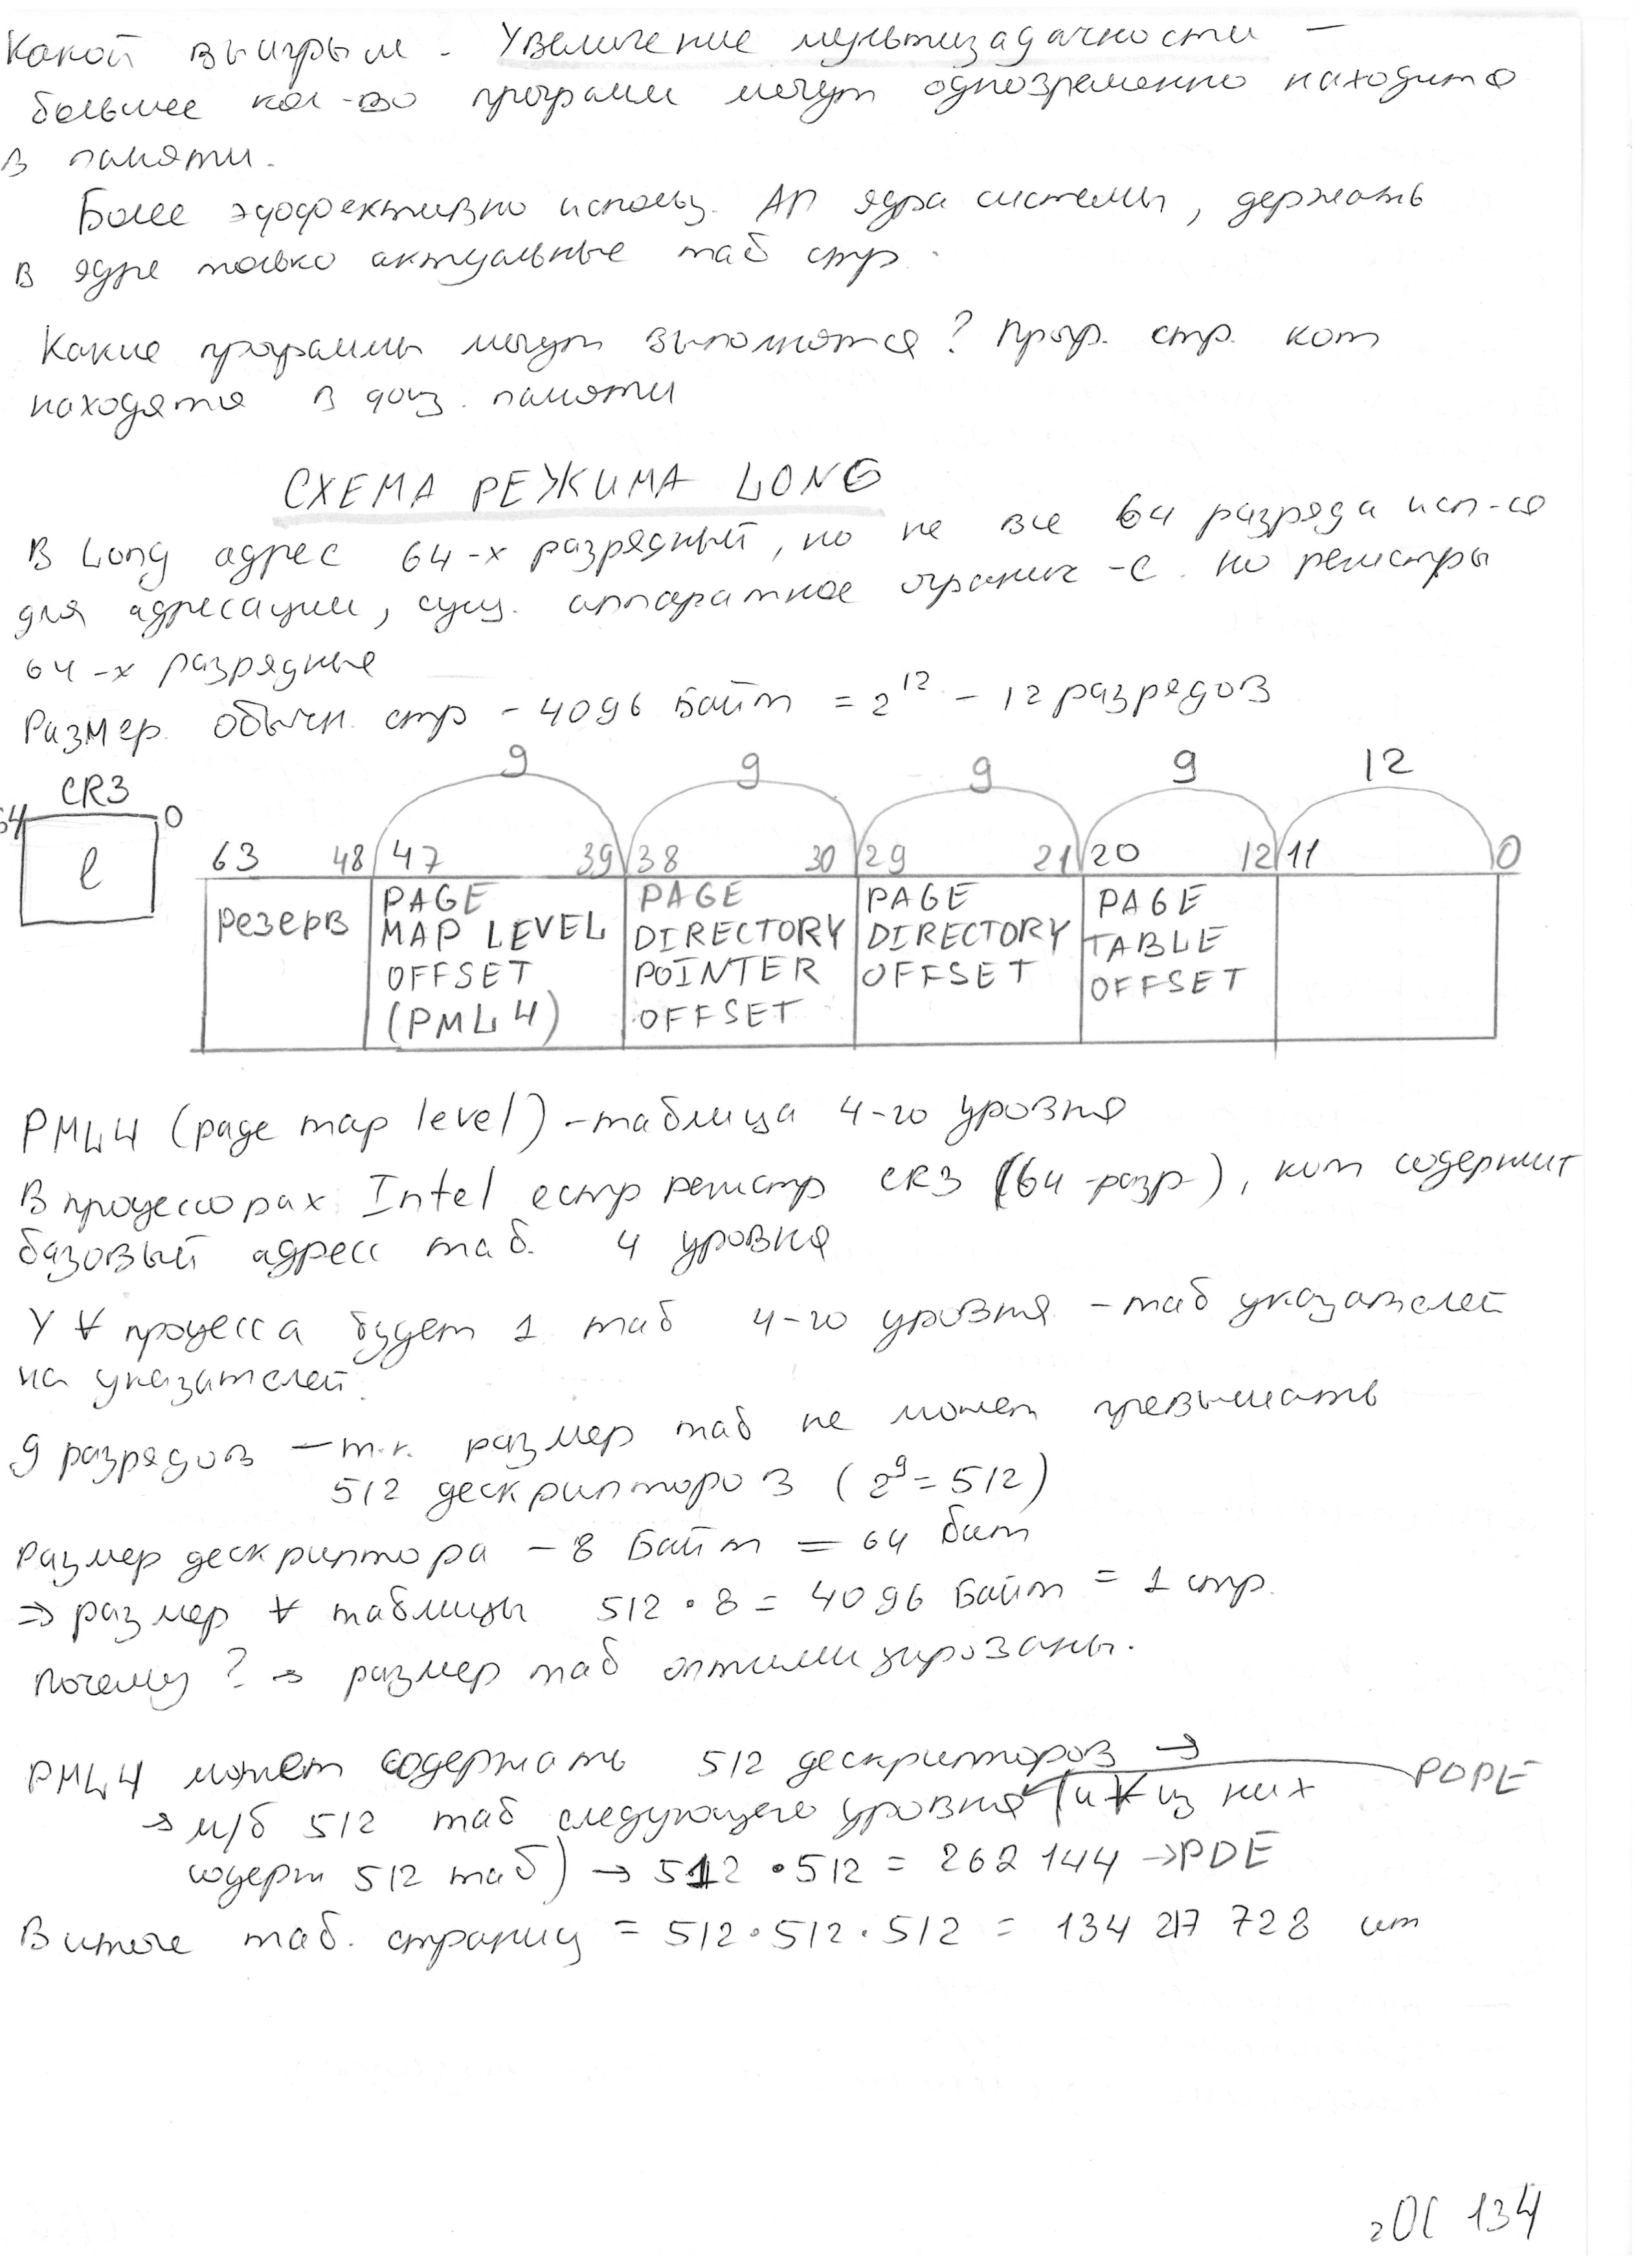 Какой выигрыш. Увеличение мультизадачности —
большее кол-во программ могут одновременно находится
в памяти.
Более эффективно использ. АП ядра системы, держать
в ядре только актуальные таб стр.
Какие программы могут выполнятся? Прогр. стр. кот
находятся в физ. памяти
СХЕМА РЕЖИМА LONG
В Long адрес 64-х разрядный, но не все 64 разряда исп-ся
для адресации, сущ. аппаратное огранич-е. но регистры
64-х разрядные
Размер обычн. стр - 4096 Байт = 2^12 - 12 разрядов
9 9 9 9 12
CR3
64 0
l
63 48 47 39 38 30 29 21 20 12 11 0
резерв
PAGE MAP LEVEL OFFSET (PML4)
PAGE DIRECTORY POINTER OFFSET
PAGE DIRECTORY OFFSET
PAGE TABLE OFFSET
PML4 (page map level) - таблица 4-го уровня
В процессорах Intel регистр CR3 (64-разр), кот содержит
базовый адрес таб. 4 уровня
У ∀ процесса будет 1 таб 4-го уровня - таб указателей
на указателей.
9 разрядов — т.к. размер таб не может превышать
512 дескрипторов (2^9 = 512)
Размер дескриптора - 8 Байт = 64 бит
⇒ размер ∀ таблицы 512 • 8 = 4096 Байт = 1 стр.
Почему? → размер таб оптимизированы.
PML4 может содержать 512 дескрипторов →
→ м/б 512 таб следующего уровня (и ∀ из них
PDPE
содерж 512 таб) → 512 • 512 = 262 144 → PDE
В итоге таб. страниц = 512 • 512 • 512 = 134 217 728 шт
2ОС 134